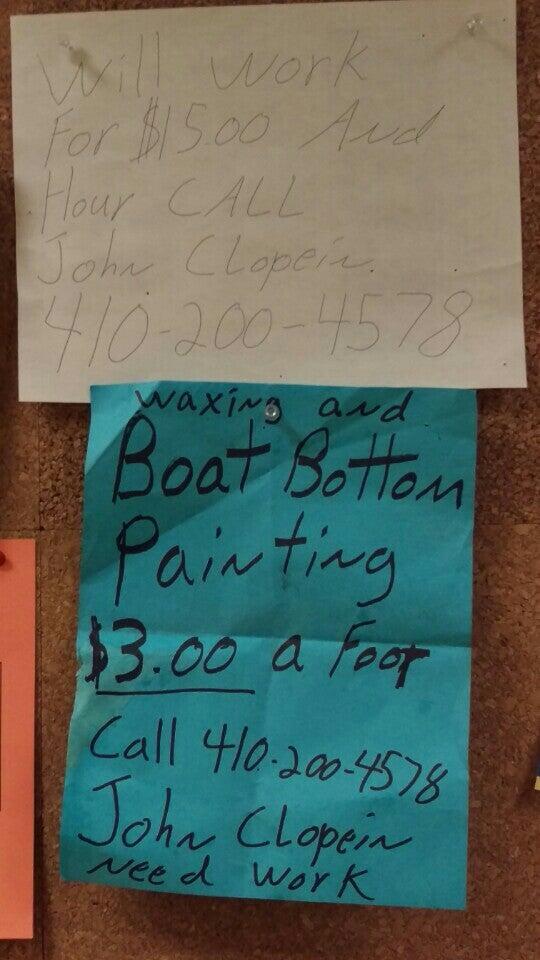 Will work
For $15.00 And
Hour CALL
John Clopein.
410-200-4578
waxing and
Boat Bottom
Painting
$3.00 a Foot
Call 410-200-4578
John Clopein
Need work